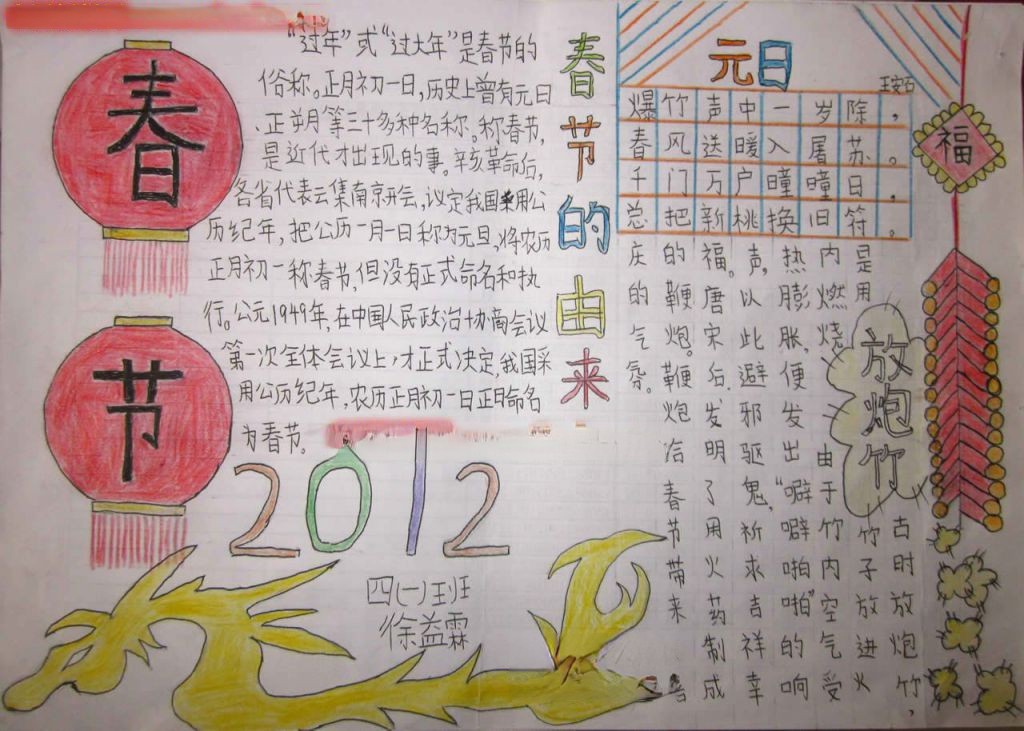 春节
春节的由来
“过年”或“过大年”是春节的
俗称。正月初一日,历史上曾有元日
、正朔等三十多种名称。称春节,
是近代才出现的事。辛亥革命后,
各省代表云集南京开会,议定我国采用公
历纪年,把公历一月一日称为元旦,将农历
正月初一称春节,但没有正式命名和执
行。公元1949年,在中国人民政治协商会议
第一次全体会议上,才正式决定,我国采
用公历纪年,农历正月初一日正月命名
为春节。
2012
四(一)班
徐益霖
元日
王安石
爆竹声中一岁除,
春风送暖入屠苏。
千门万户曈曈日,
总把新桃换旧符。
福
放炮竹
古时放炮竹,
是用竹子放进火
内燃烧,由于竹内空气受
热膨胀,便发出“噼噼啪啪”的响
声,以此避邪驱鬼,祈求吉祥幸
福。唐宋后,发明了用火药制成
的鞭炮。鞭炮给春节带来
庆的气氛。